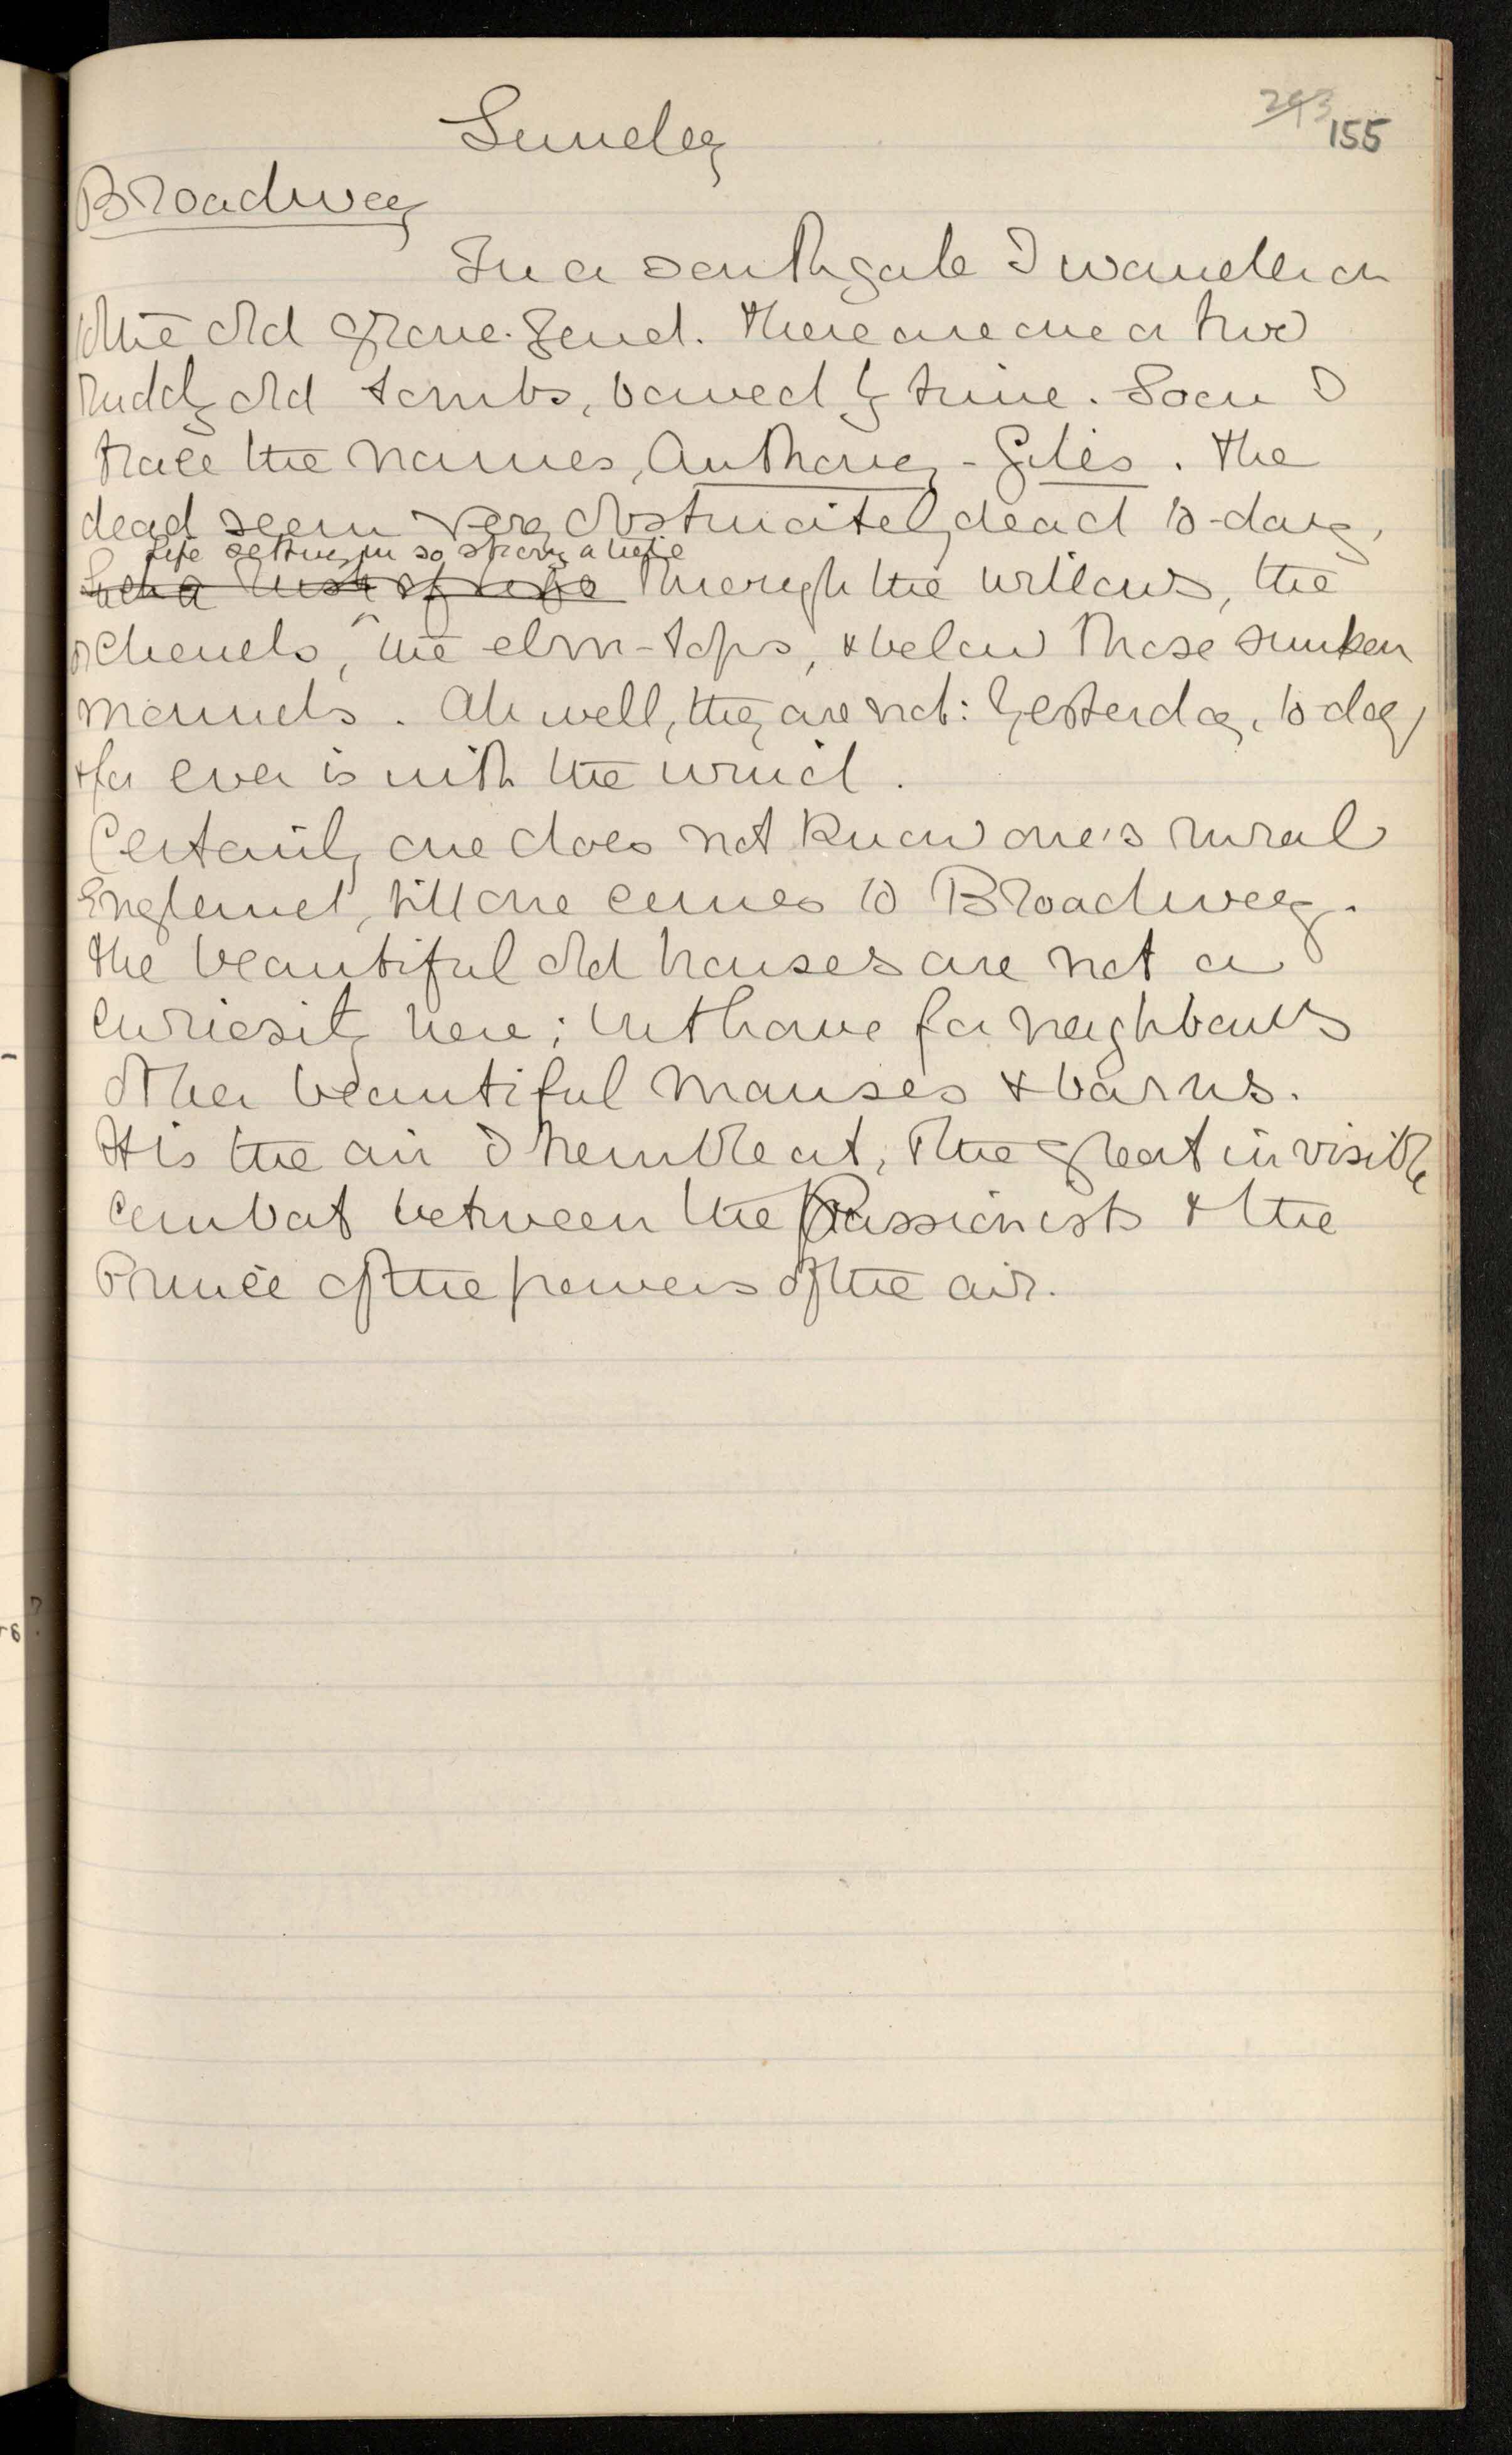 Sunday
293 155
Broadway
In a south gale I wander on
to the old grave-yard. There are one or two
ruddy old tombs, bowed by time. Soon I
trace the names, Anthony - Giles. The
dead seem very obstinately dead to-day,
Life setting in so strong a tide
Such a rush of life through the willows, the
orchards, the elm-tops, & below those sunken
mounds. Ah well, they are not: Yesterday, to-day,
& for ever is with the wind.
Certainly one does not know one's rural
England, till one comes to Broadway.
The beautiful old houses are not a
curiosity here; but have for neighbours
other beautiful manses & barns.
It is the air I tremble at, & the great invisible
combat between the Passionists & the
Prince of the powers of the air.